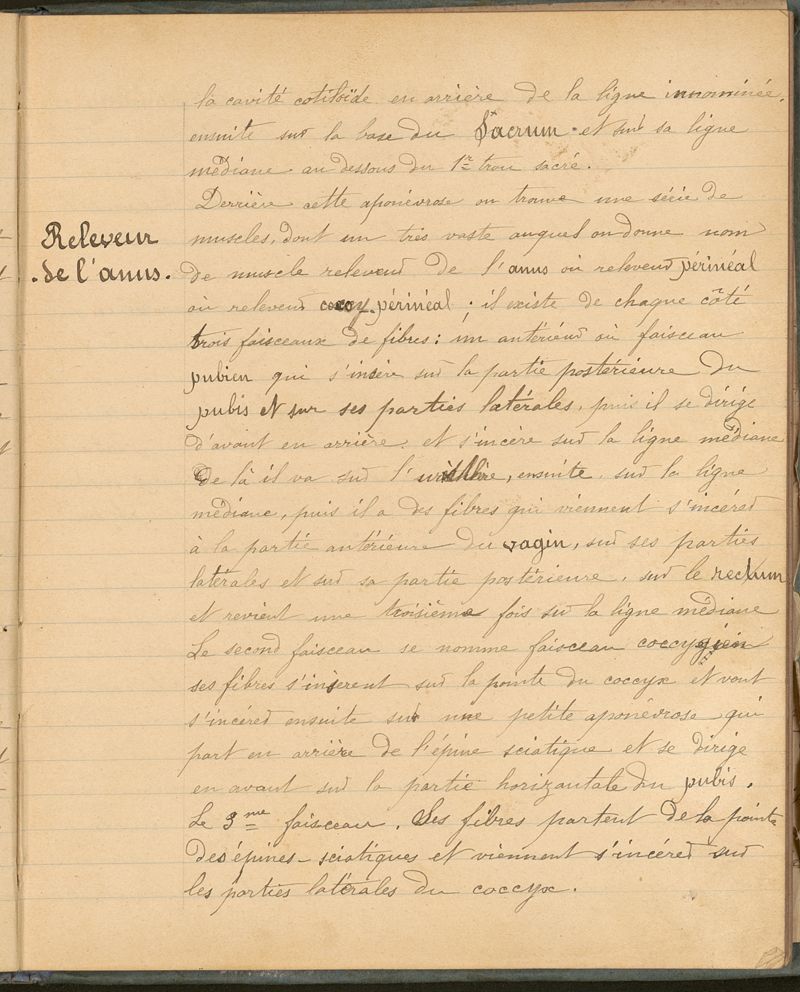 la cavité cotiloïde en arrière de la ligne innominée,
ensuite sur la base du Sacrum et sur sa ligne
médiane au dessous du 1er trou sacré.
Derrière cette aponévrose on trouve une série de
Releveur
muscles, dont un très vaste auquel on donne nom
de l'anus.
de muscle releveur de l'anus où releveur périnéal
où releveur coccy-périnéal ; il existe de chaque côté
trois faisceaux de fibres: un antérieur où faisceau
pubien qui s'insère sur la partie postérieure du
pubis et sur ses parties latérales, puis il se dirige
d'avant en arrière, et s'incère sur la ligne médiane
De là il va sur l', ensuite sur la ligne
médiane, puis il a des fibres qui viennent s'incérer
à la partie antérieure du vagin, sur ses parties
latérales et sur sa partie postérieure, sur le rectum
et revient une troisième fois sur la ligne médiane
Le second faisceau se nomme faisceau coccygien
ses fibres s'insèrent sur la pointe du coccyx et vont
s'incérer ensuite sur une petite aponévrose qui
part en arrière de l'épine sciatique et se dirige
en avant sur la partie horizontale du pubis.
Le 3me faisceau. Ses fibres partent de la pointe
des épines-sciatiques et viennent s'incérer sur
les parties latérales du coccyx.